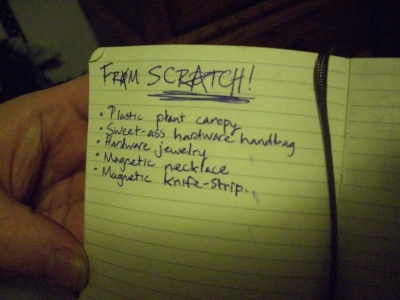 FRAM SCRATCH!
• Plastic plant canopy
• Sweet-ass hardware handbag
• Hardware jewelry
• Magnetic necklace
• Magnetic knife-strip.